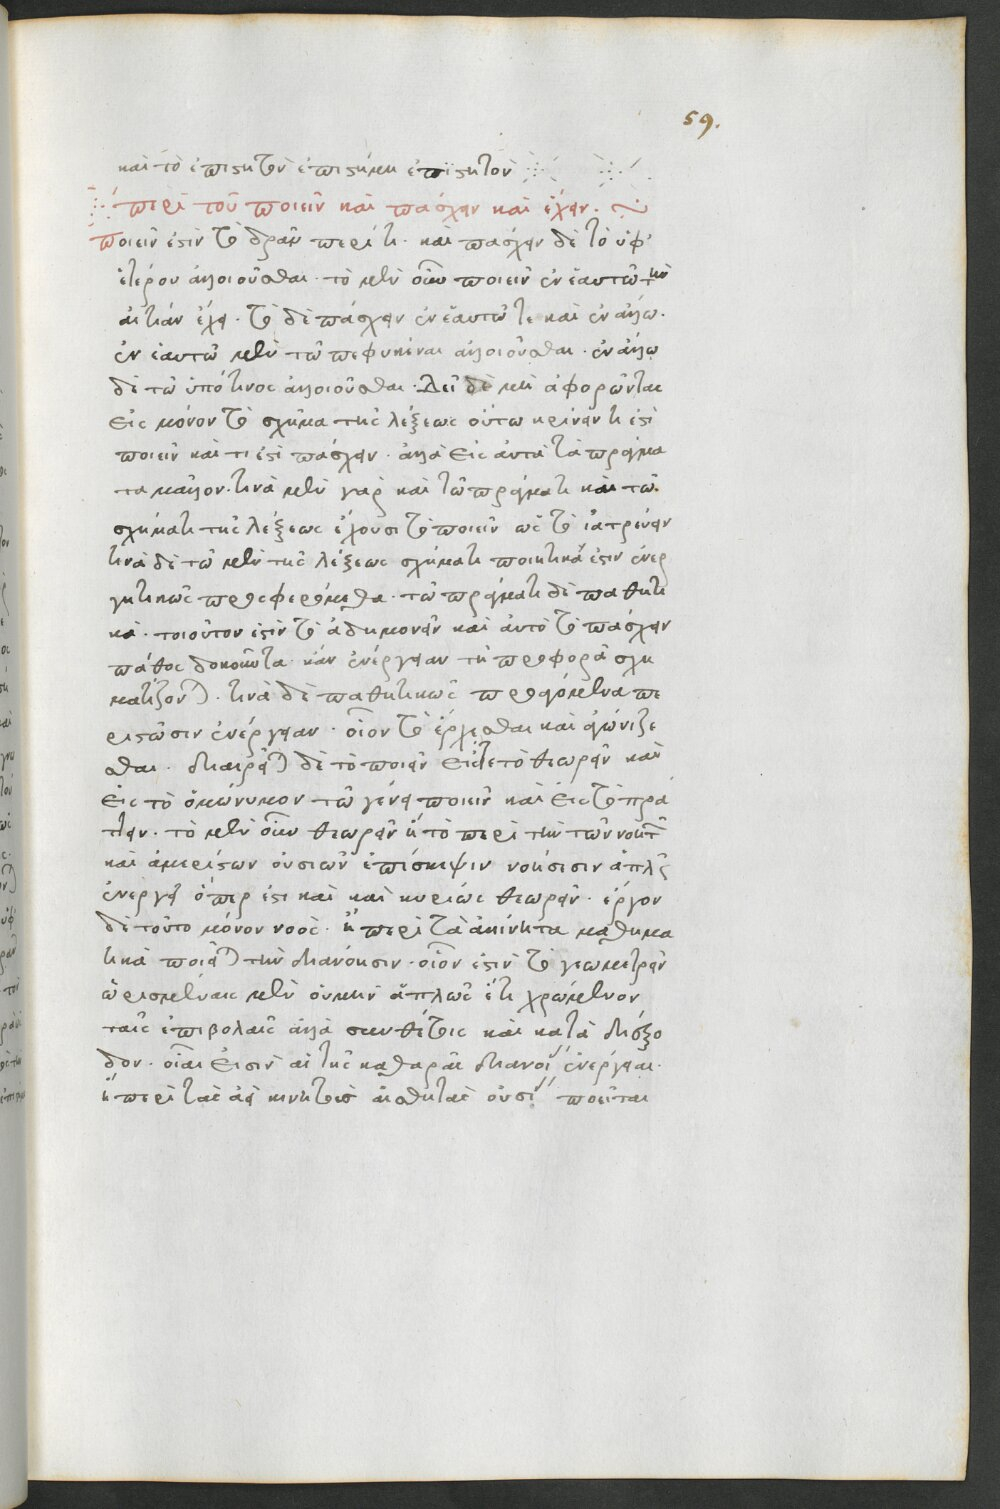 59.
καὶ τὸ ἐπιστητὸν ἐπιστήμη ἐπιστητὸν
περὶ τοῦ ποιεῖν καὶ πάσχειν καὶ ἔχειν.
ποιεῖν ἐστὶν τὸ δρᾶν περί τι· καὶ πάσχειν δὲ τὸ ὑφ'
ἑτέρου ἀλλοιοῦσθαι· τὸ μὲν οὖν ποιεῖν ἐν ἑαυτῶ τὴν
αἰτίαν ἔχει· τὸ δὲ πάσχειν ἐν ἑαυτῶ τε καὶ ἐν ἄλλω.
ἐν ἑαυτῶ μὲν τῶ πεφυκέναι ἀλλοιοῦσθαι· ἐν ἄλλω
δὲ τῶ ὑπό τινος ἀλλοιοῦσθαι. Δεῖ δὲ μὴ ἀφορῶντας
εἰς μόνον τὸ σχῆμα τῆς λέξεως οὕτω κρίνειν τί ἐστι
ποιεῖν καὶ τί ἐστι πάσχειν· ἀλλὰ εἰς αὐτὰ τὰ πράγμα
τα μᾶλλον· τινὰ μὲν γὰρ καὶ τῶ πράγματι καὶ τῶ
σχήματι τῆς λέξεως ἔχουσι τὸ ποιεῖν ὡς τὸ ἰατρεύειν
τινὰ δὲ τῶ μὲν τῆς λέξεως σχήματι ποιητικά ἐστιν ἐνερ
γητικῶς προσφερόμεθα· τῶ πράγματι δὲ παθητι
κά· τοιοῦτον ἐστὶν τὸ ἀδημονεῖν καὶ αὐτὸ τὸ πάσχειν
πάθος δοκοῦντα κἂν ἐνέργειαν τῆ προφορᾶ σχη
ματίζονται. τινὰ δὲ παθητικῶς προαγόμενα πε
ριστῶσιν ἐνέργειαν· οἷον τὸ ἔρχεσθαι καὶ ἀγωνίζε
σθαι. διαιρεῖται δὲ τὸ ποιεῖν εἴς τε τὸ θεωρεῖν καὶ
εἰς τὸ ὁμώνυμον τῶ γένει ποιεῖν καὶ εἰς τὸ πρά
τειν· τὸ μὲν οὖν θεωρεῖν ἢ τὸ περὶ τὴν τῶν νοητῶν
καὶ ἀμερίστων οὐσιῶν ἐπίσκεψιν νοήσεσιν ἁπλαῖς
ἐνεργεῖ ὅπερ ἐστὶ καὶ καὶ κυρίως θεωρεῖν· ἔργον
δὲ τοῦτο μόνον νοός· ἢ περὶ τὰ ἀκίνητα μαθημα
τικὰ ποιεῖται τὴν διανόησιν· οἷον ἐστὶν τὸ γεωμετρεῖν
ὡρισμέναις μὲν οὐ μὴν ἁπλῶς ἔτι χρώμενον
ταῖς ἐπιβολαῖς ἀλλὰ συνθέτοις καὶ κατὰ διέξο
δον· οἷαι εἰσὶν αἱ τῆς καθαρᾶς διανοίας ἐνέργειαι.
ἢ περὶ τὰς ἀεὶ κινητὰς αἰσθητὰς οὐσίας ποιεῖται